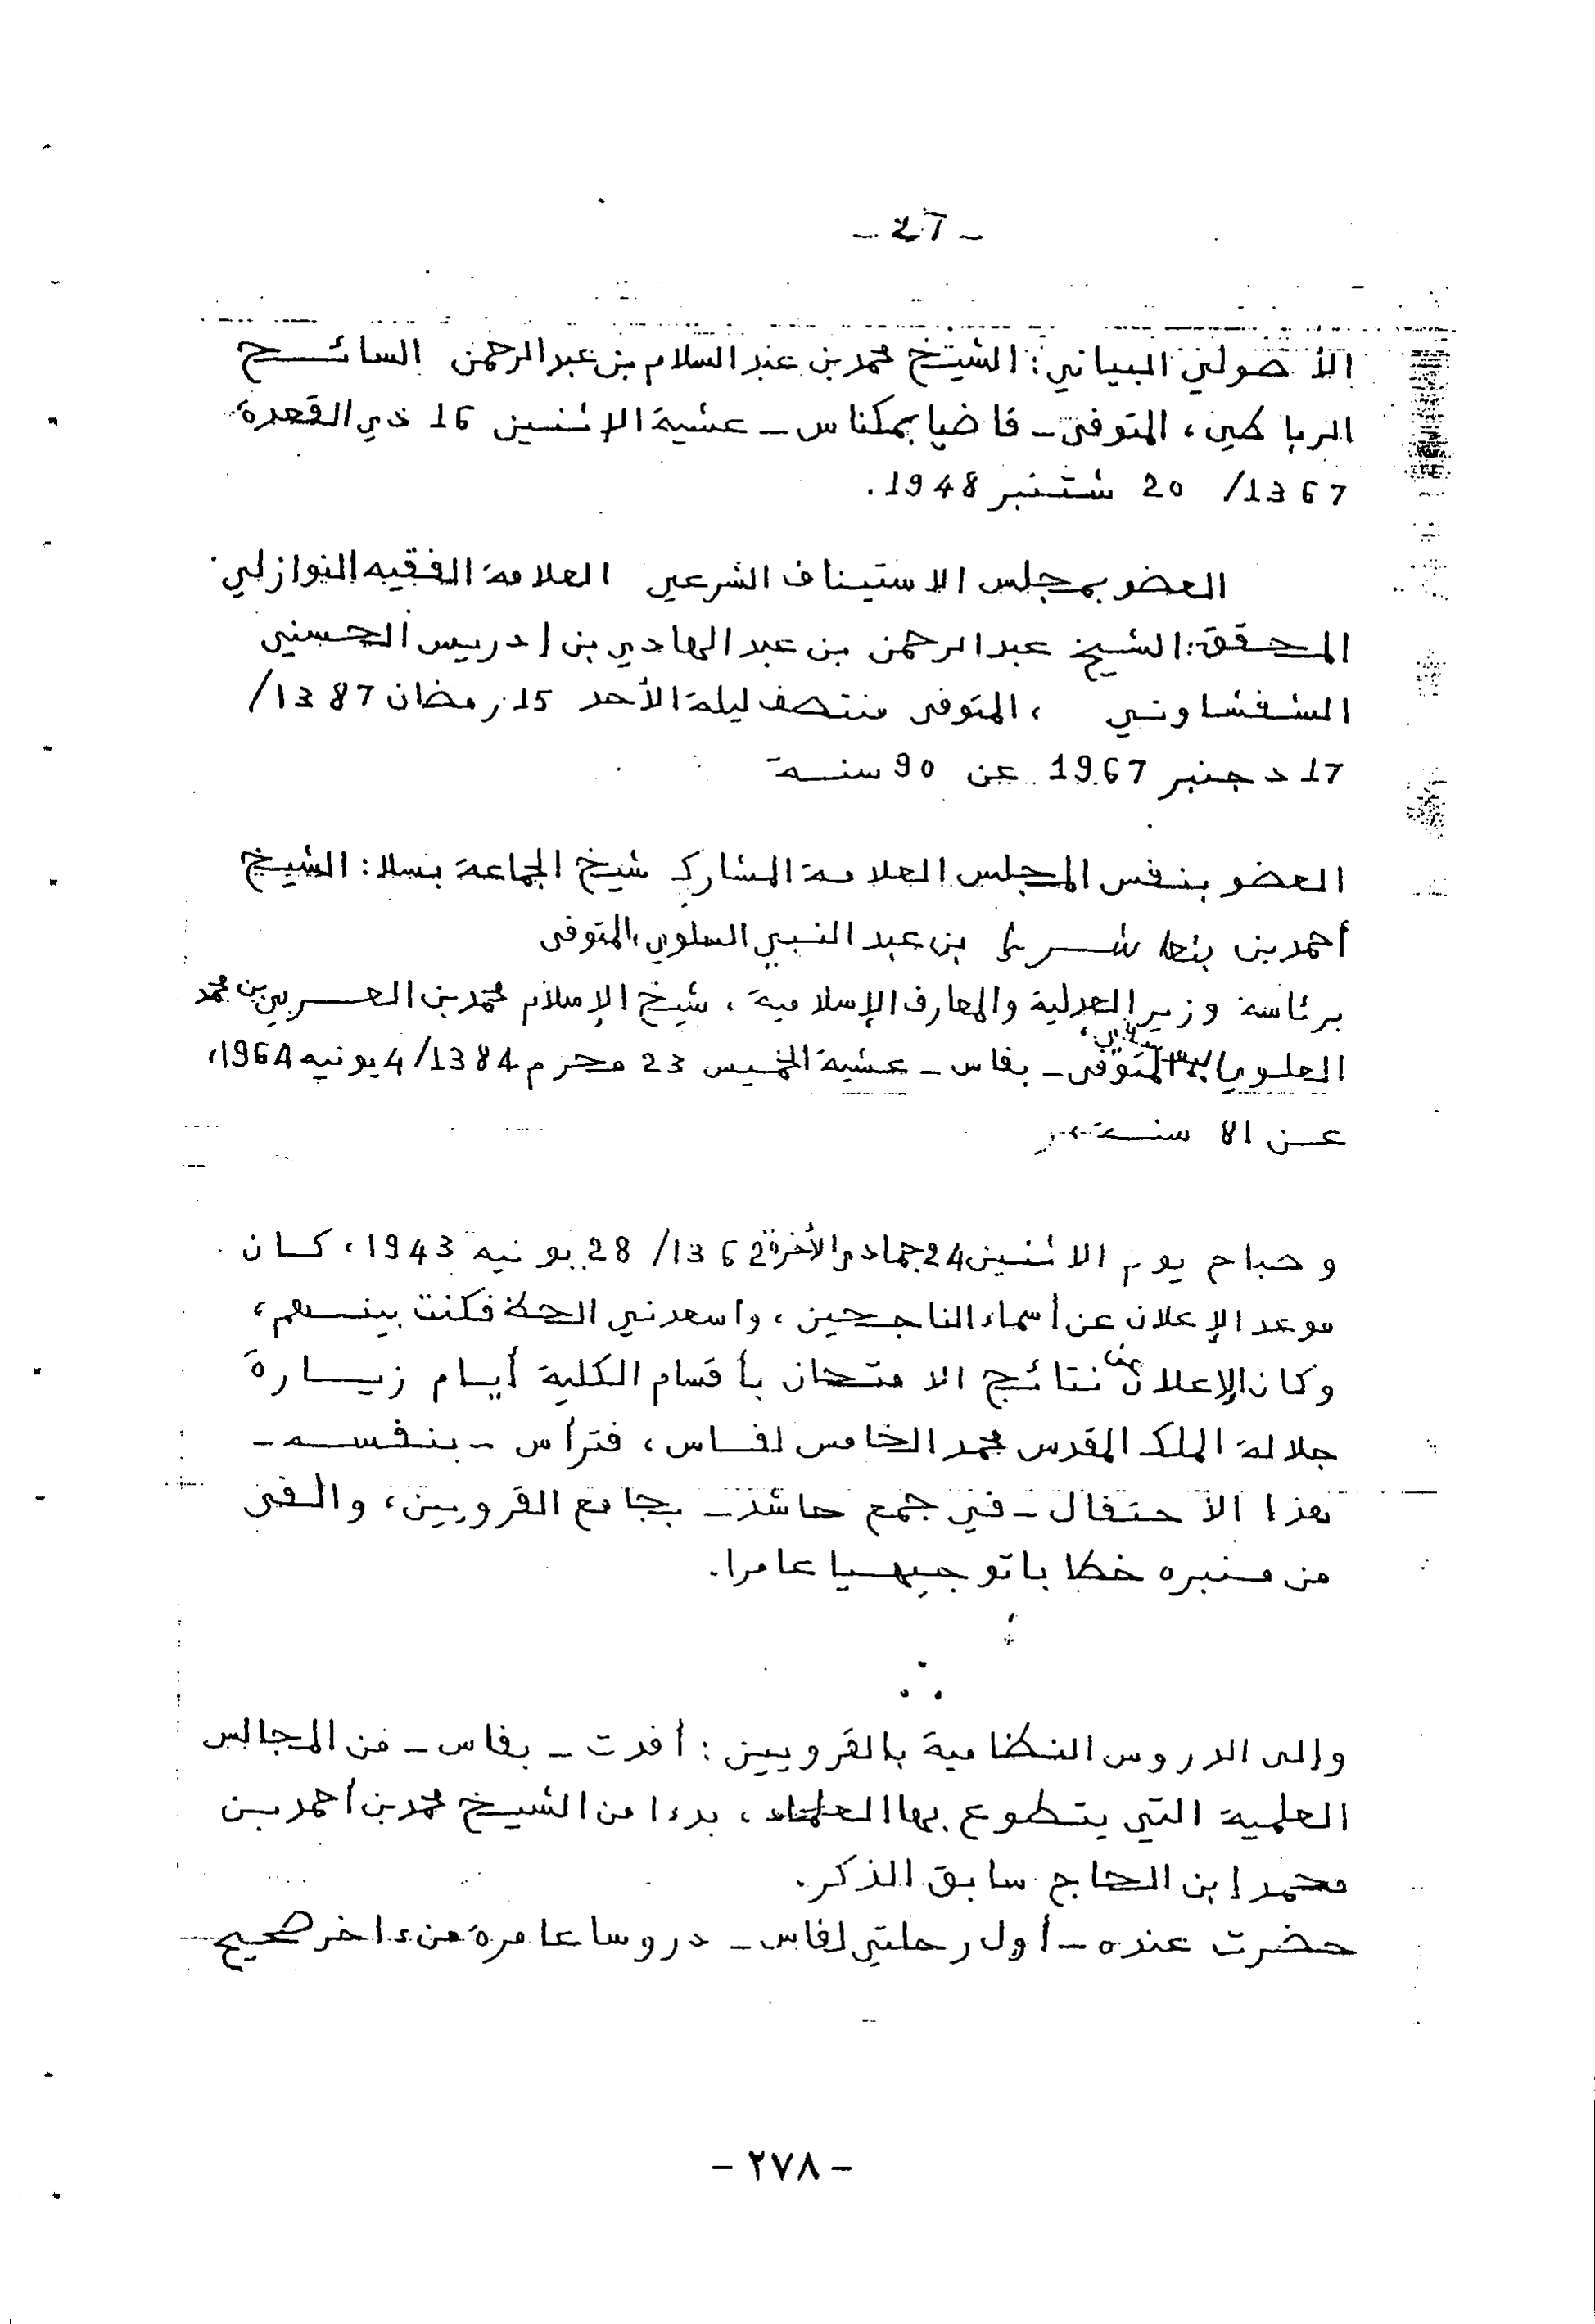 - 27 -
الأصولي البياني: الشيخ محمد بن عبد السلام بن عبد الرحمن السائح
الرباطي، المتوفى - قاضيا بمكناس - عشية الإثنين 16 ذي القعدة
1367/ 20 شتنبر 1948.
العضو بمجلس الاستيناف الشرعي العلامة الفقيه النوازلي
المحقق: الشيخ عبد الرحمن بن عبد الهادي بن إدريس الحسني
الشفشاوني ، المتوفى منتصف ليلة الأحد 15 رمضان 1387/
17 دجنبر 1967 عن 90 سنة
العضو بنفس المجلس العلامة المشارك شيخ الجماعة بسلا: الشيخ
أحمد بن بن عبد النبي السلوي، المتوفى
برئاسة وزير العدلية والمعارف الإسلامية، شيخ الإسلام محمد بن العربي بن محمد
العلوي المتوفى - بفاس - عشية الخميس 23 محرم 1384/4 يونيه 1964،
عن 81 سنة
وصباح يوم الاثنين 24 جمادى الأخرة 1362/ 28 يونيه 1943، كان
موعد الإعلان عن أسماء الناجحين، وأسعدني الحظ فكنت بينهم،
وكان الإعلان عن نتائج الامتحان بأقسام الكلية أيام زيارة
جلالة الملك المقدس محمد الخامس لفاس، فترأس - بنفسه -
هذا الاحتفال - في جمع حاشد - بجامع القرويين، والقى
من منبره خطابا توجيهيا عامرا.
وإلى الدروس النظامية بالقرويين: أفدت - بفاس - من المجالس
العلمية التي يتطوع بها العلماء، بدءا من الشيخ محمد بن أحمد بن
محمد ابن الحاج سابق الذكر.
حضرت عنده - أول رحلتي لفاس - دروسا عامرة من ءاخر صحيح
- ٢٧٨ -